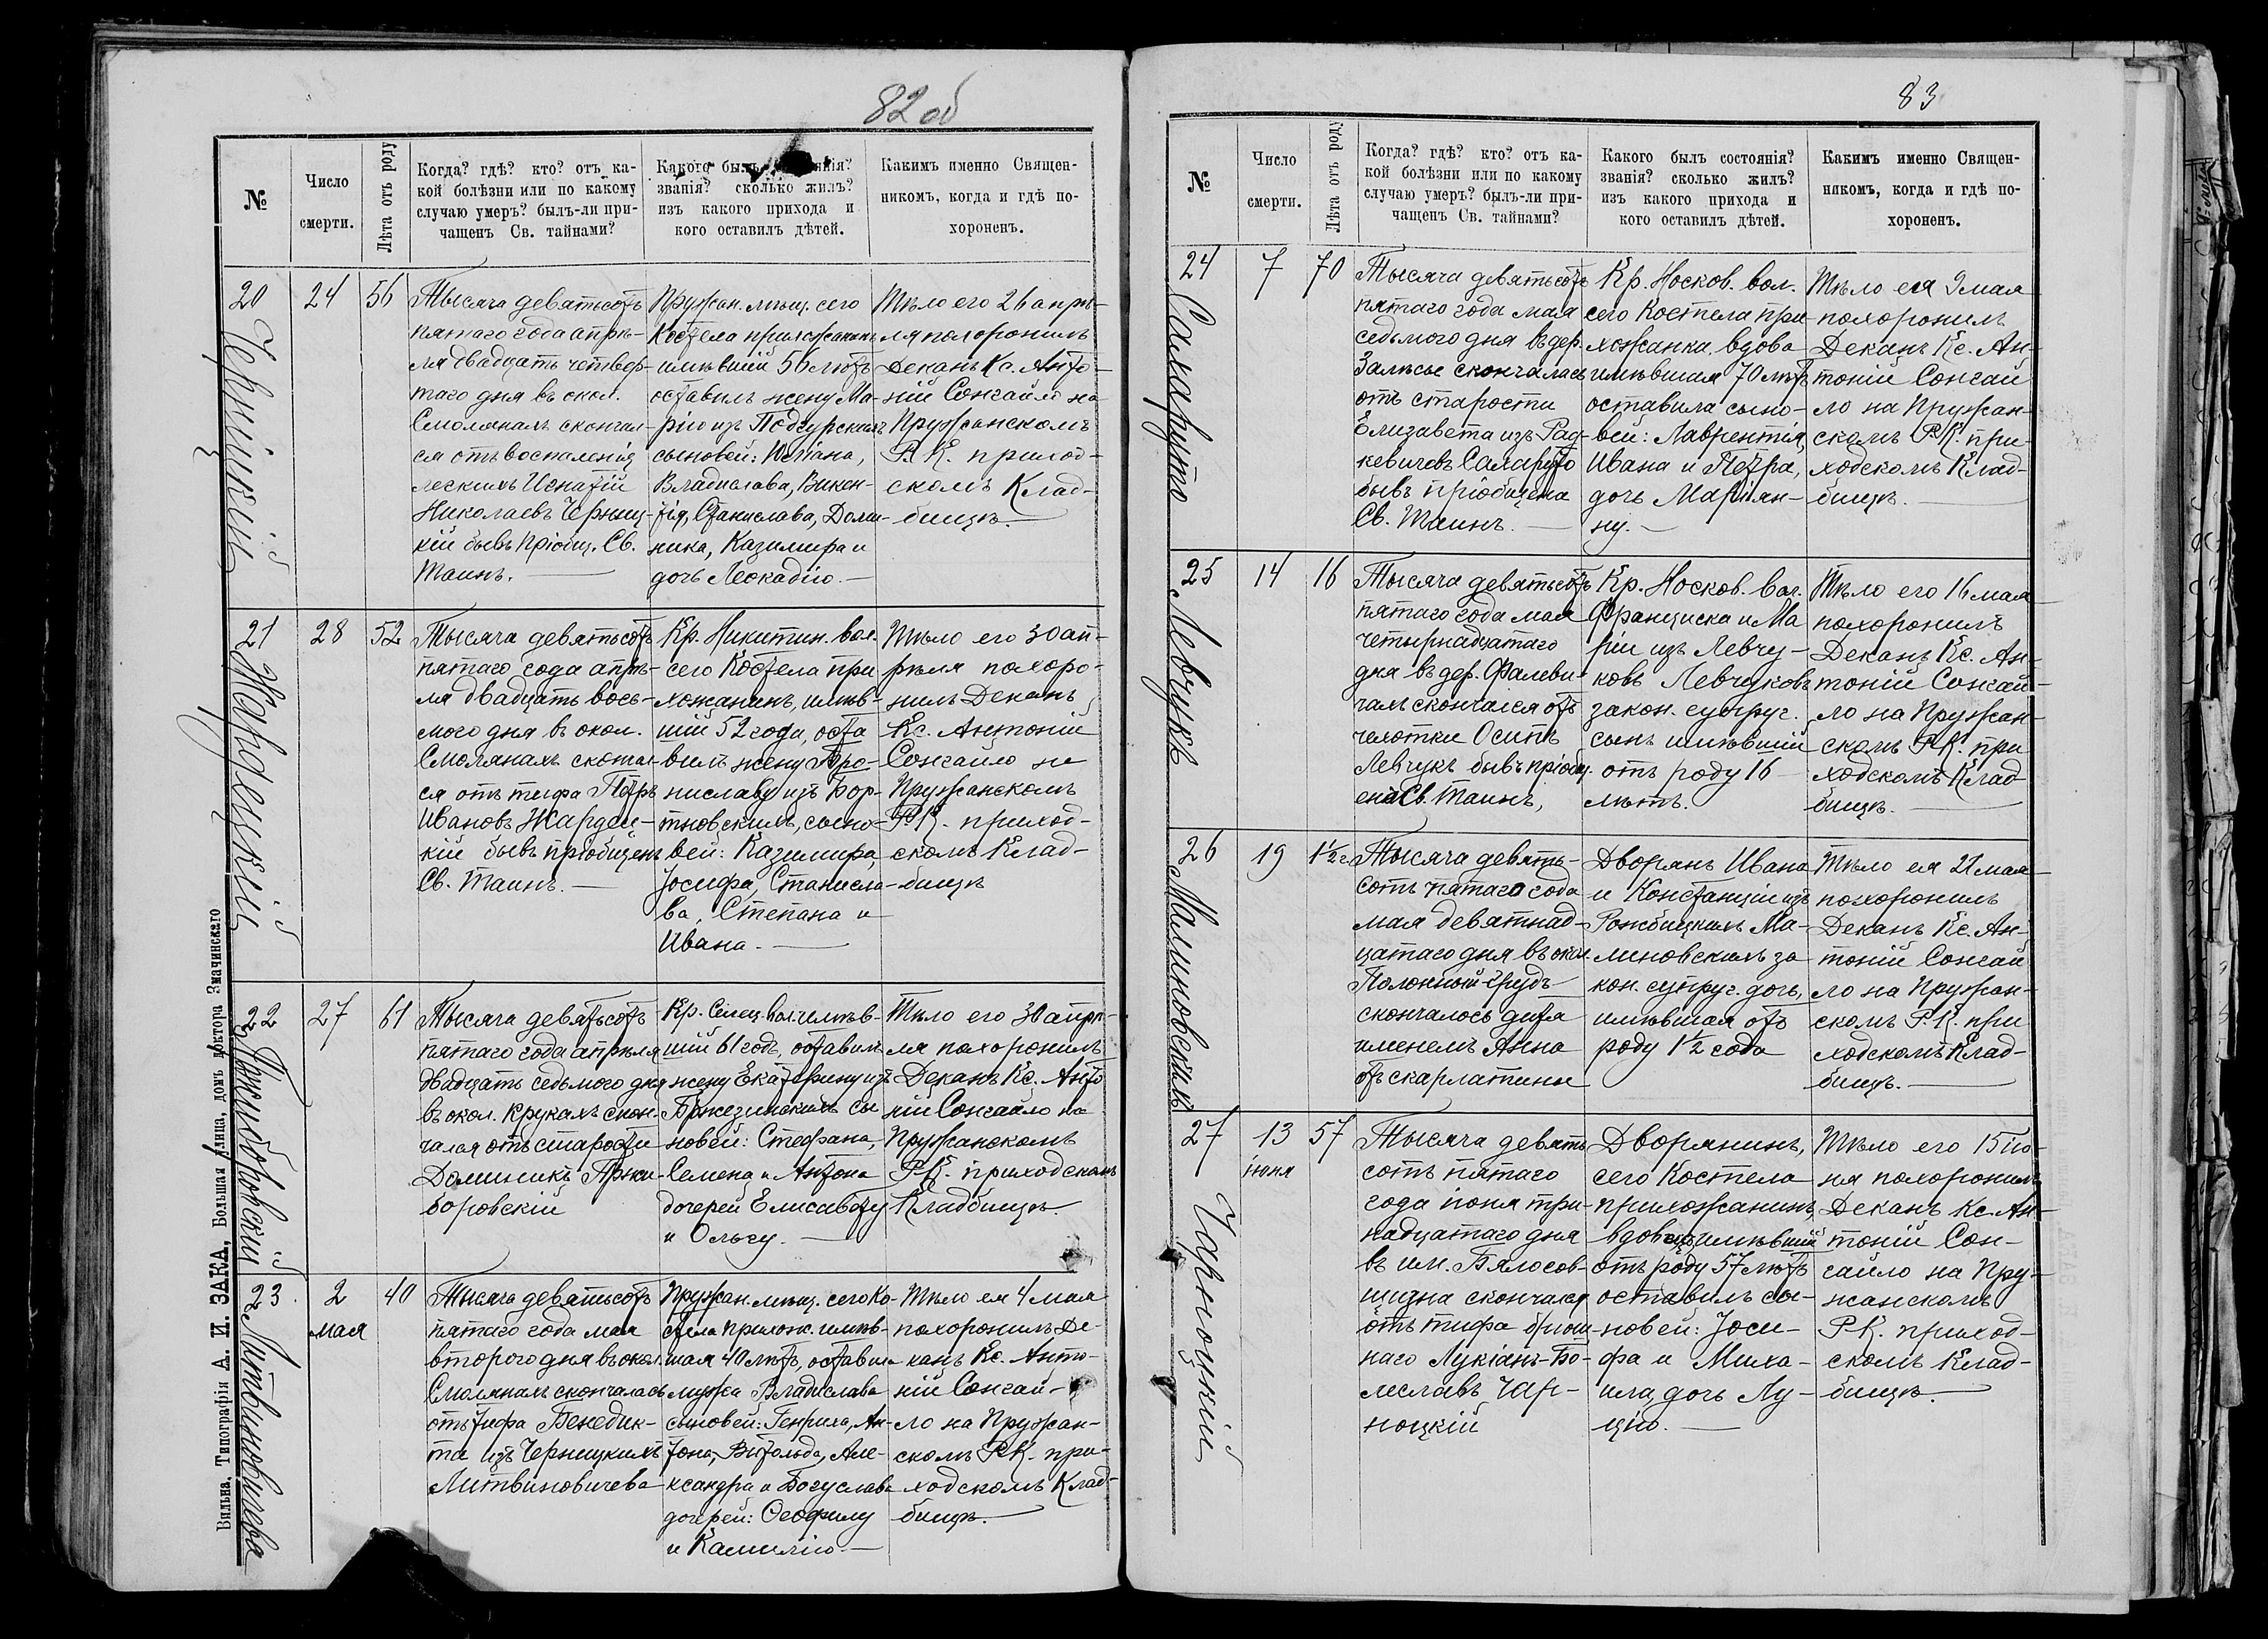 82 об
№
Число
смерти.
Лѣта отъ роду
Когда? гдѣ? кто? отъ ка-
кой болѣзни или по какому
случаю умеръ? былъ-ли при-
чащенъ Св. тайнами?
Какого былъ
званія? сколько жилъ?
изъ какого прихода и
кого оставилъ дѣтей.
Какимъ именно Священ-
никомъ, когда и гдѣ по-
хороненъ.
20
Черницкій
24
56
Тысяча девятьсотъ
пятаго года апрѣ-
ля двадцать четвер-
таго дня въ окол.
Смолянахъ скончал-
ся отъ воспаленія
легкихъ Игнатій
Николаевъ Черниц-
кій бывъ пріобщ. Св.
Таинъ.
Пружан. мѣщ. сего
Костела прихожанинъ
имѣвшій 56 лѣтъ
оставилъ жену Ма-
рію изъ Подгурскихъ
сыновей: Юліана,
Владислава, Викен-
тія, Станислава, Доми-
ника, Казимира и
дочь Леокадію.
Тѣло его 26 апрѣ-
ля похоронилъ
Деканъ Кс. Анто-
ній Сонгайло на
Пружанскомъ
Р. К. приход-
скомъ Клад-
бищѣ.
21
Жардецкій
28
52
Тысяча девятьсотъ
пятаго года апрѣ-
ля двадцать вось-
мого дня въ окол.
Смолянахъ скончал-
ся отъ тифа Петръ
Ивановъ Жардец-
кій бывъ пріобщенъ
Св. Таинъ.
Кр. Никитин. вол.
сего Костела при
хожанинъ, имѣв-
шій 52 года, оста
вилъ жену Бро-
ниславу изъ Бор-
тновскихъ, сыно-
вей: Казимира,
Іосифа, Станисла-
ва, Степана и
Ивана.
Тѣло его 30 ап-
рѣля похоро-
нилъ Деканъ
Кс. Антоній
Сонгайло на
Пружанскомъ
Р.К. приход-
скомъ Клад-
бищѣ
22
Пржиборовскій
27
61
Тысяча девятьсотъ
пятаго года апрѣля
двадцать седьмого дня
въ окол. Крукахъ скон-
чался отъ старости
Доминикъ Пржи-
боровскій
Кр. Селец. вол. имѣв-
шій 61 годъ, оставилъ
жену Екатерину изъ
Бржезинскихъ сы
новей: Стефана,
Семена и Антона
дочерей Елисавету
и Ольгу.
Тѣло его 30 апрѣ-
ля похоронилъ
Деканъ Кс. Анто
ній Сонгайло на
Пружанскомъ
Р.К. приходскомъ
Кладбищѣ.
23
Литвиновичева
2
мая
40
Тысяча девятьсотъ
пятаго года мая
второго дня въ окол.
Смолянахъ скончалась
отъ тифа Бенедик-
та изъ Черницкихъ
Литвиновичева
Пружан. мѣщ. сего Ко-
стела прихож. имѣв-
шая 40 лѣтъ, оставила
мужа Владислава
сыновей: Генриха, Ан-
тона, Витольда, Але-
ксандра и Богуслава
дочерей: Ѳеофилу
и Камилію.
Тѣло ея 4 мая
похоронилъ Де-
канъ Кс. Анто-
ній Сонгай-
ло на Пружан-
скомъ Р.К. при-
ходскомъ Клад-
бищѣ.
Вильна, Типографія А. И. ЗАКА, Большая улица, домъ доктора Змачинскаго
83
№
Число
смерти.
Лѣта отъ роду
Когда? гдѣ? кто? отъ ка-
кой болѣзни или по какому
случаю умеръ? былъ-ли при-
чащенъ Св. тайнами?
Какого былъ состоянія?
званія? сколько жилъ?
изъ какого прихода и
кого оставилъ дѣтей.
Какимъ именно Священ-
никомъ, когда и гдѣ по-
хороненъ.
24
Самаруто
7
70
Тысяча девятьсотъ
пятаго года мая
седьмого дня въ дер.
Залѣсье скончалась
отъ старости
Елизавета изъ Рад-
кевичевъ Самаруто
бывъ пріобщена
Св. Таинъ.
Кр. Носков. вол.
сего Костела при
хожанка, вдова
имѣвшая 70 лѣтъ
оставила сыно-
вей: Лаврентія,
Ивана и Петра,
дочь Маріян-
ну.
Тѣло ея 9 мая
похоронилъ
Деканъ Кс. Ан-
тоній Сонгай
ло на Пружан-
скомъ Р.К. при-
ходскомъ Клад-
бищѣ.
25
Левчукъ
14
16
Тысяча девятьсотъ
пятаго года мая
четырнадцатаго
дня въ дер. Фалеви-
чахъ скончался отъ
чахотки Осипъ
Левчукъ бывъ пріобщ.
енъ Св. Таинъ,
Кр. Носков. вол.
Франциска и Ма
ріи изъ Левчу-
ковъ Левчуковъ
закон. супруг.
сынъ имѣвшій
отъ роду 16
лѣтъ.
Тѣло его 16 мая
похоронилъ
Деканъ Кс. Ан-
тоній Сонгай-
ло на Пружан-
скомъ Р.К. при
ходскомъ Клад-
бищѣ.
26
Малиновскихъ
19
1½ г.
Тысяча девять-
сотъ пятаго года
мая девятнад-
цатаго дня въ окол
Полонный-Грудъ
скончалось дитя
именемъ Анна
отъ скарлатины
Дворянъ Ивана
и Констанціи изъ
Рожбицкихъ Ма-
линовскихъ за
кон. супруг. дочь,
имѣвшая отъ
роду 1½ года
Тѣло ея 21 мая
похоронилъ
Деканъ Кс. Ан-
тоній Сонгай
ло на Пружан-
скомъ Р.К. при
ходскомъ Клад-
бищѣ.
27
Чарноцкій
13
іюня
57
Тысяча девять
сотъ пятаго
года іюня три-
надцатаго дня
въ им. Бялосов-
щизна скончался
отъ тифа брюш-
наго Лукіанъ-Бо-
леславъ Чар-
ноцкій
Дворянинъ,
сего Костела
прихожанинъ,
вдовецъ имѣвшій
отъ роду 57 лѣтъ
оставилъ сы-
новей: Іоси-
фа и Миха-
ила, дочь Лу-
цію.
Тѣло его 15 ію-
ня похоронилъ
Деканъ Кс. Ан-
тоній Сон-
гайло на Пру-
жанскомъ
Р.К. приход-
скомъ Клад-
бищѣ.